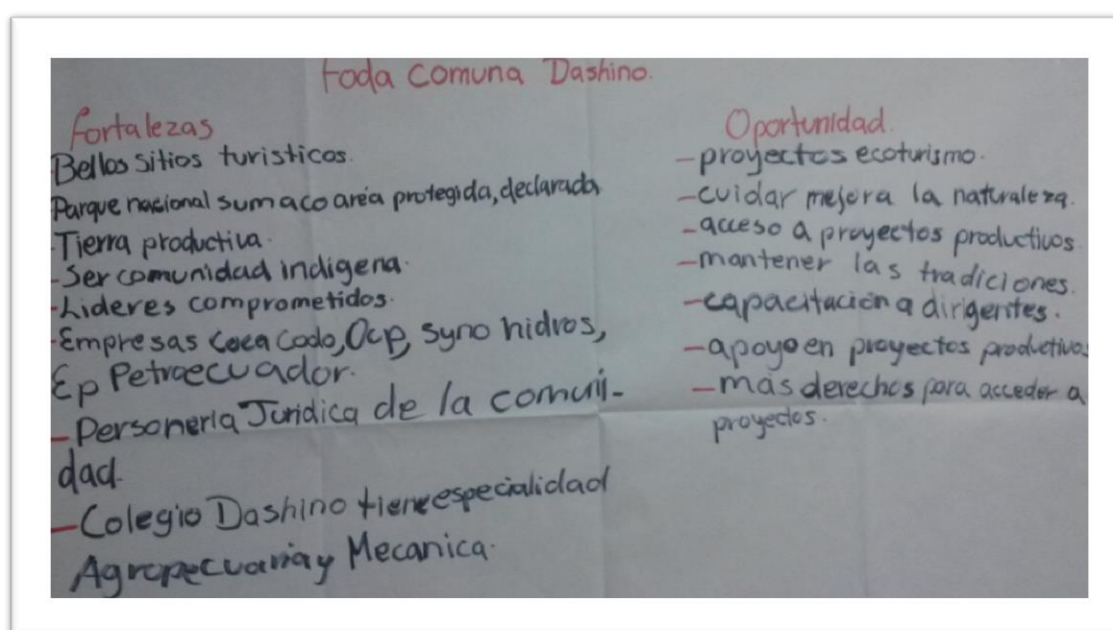 Foda Comuna Dashino.
Fortalezas
Bellos sitios turisticos.
Parque nacional sumaco area protegida, declarada
-Tierra productiva.
-Ser comunidad indigena.
-Lideres comprometidos.
-Empresas Coca Codo, Ocp, syno hidros,
Ep Petroecuador.
-Personeria Juridica de la comuni-
dad.
-Colegio Dashino tiene especialidad
Agropecuaria y Mecanica.
Oportunidad.
-proyectos ecoturismo.
-cuidar mejora la naturaleza.
-acceso a proyectos productivos.
-mantener las tradiciones.
-capacitación a dirigentes.
-apoyo en proyectos productivos
-más derechos para acceder a
proyectos.